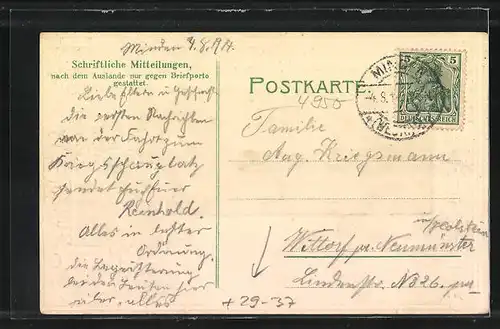 Minden 4.8.14.
Schriftliche Mitteilungen,
nach dem Auslande nur gegen Briefporto
gestattet.
Liebe Eltern u. Geschwister
die ersten Nachrichten
von der Fahrt zum
Kriegsschauplatz
sendet Euch Euer
Reinhold.
Alles in bester
Ordnung.
die Begeisterung
bei den Leuten hier
über alles
POSTKARTE
4950
5 5
DEUTSCHES REICH
MINDEN
Familie
Aug. Kriegsmann
in Holstein
Wittorf pr. Neumünster
Lindenstr. No 26.
+ 29-37